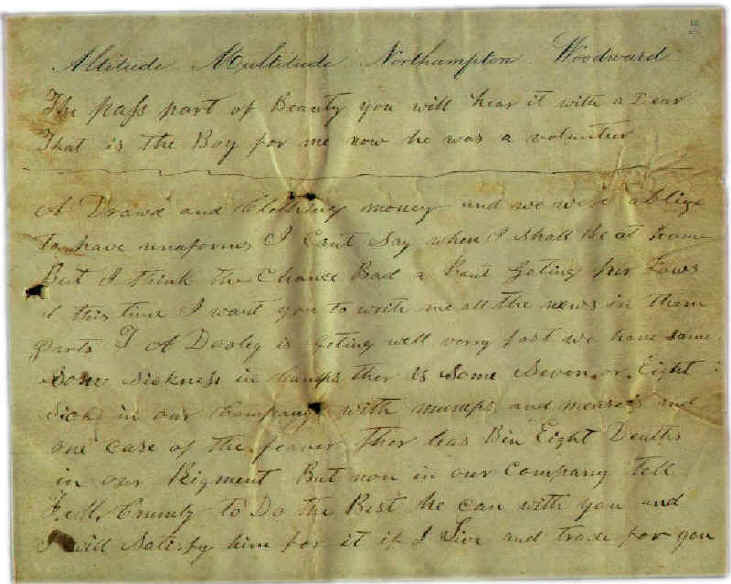 Altitude Multitude Northampton Woodward
The pass part of Beauty you will hear it with a Dear
That is the Boy for me now he was a volunteer
A Drawd and Clothing money and we will oblige
to have unaforms I Cant Say when I shall be at home
But I think the Chance Bad a bout Geting fur lows
at this time I want you to write me all the news in them
parts T A Dooley is geting well verry fast we have some
Some Sickness in Camps ther is Some Seven or Eight
Sick in our Company with mumps and measels and
one case of the feaver Ther has Bin Eight Deaths
in our Rigment But non in our Company Tell
F. M. to Do the Best he can with you and
I will Satisfy him for it if I Live and trade for you